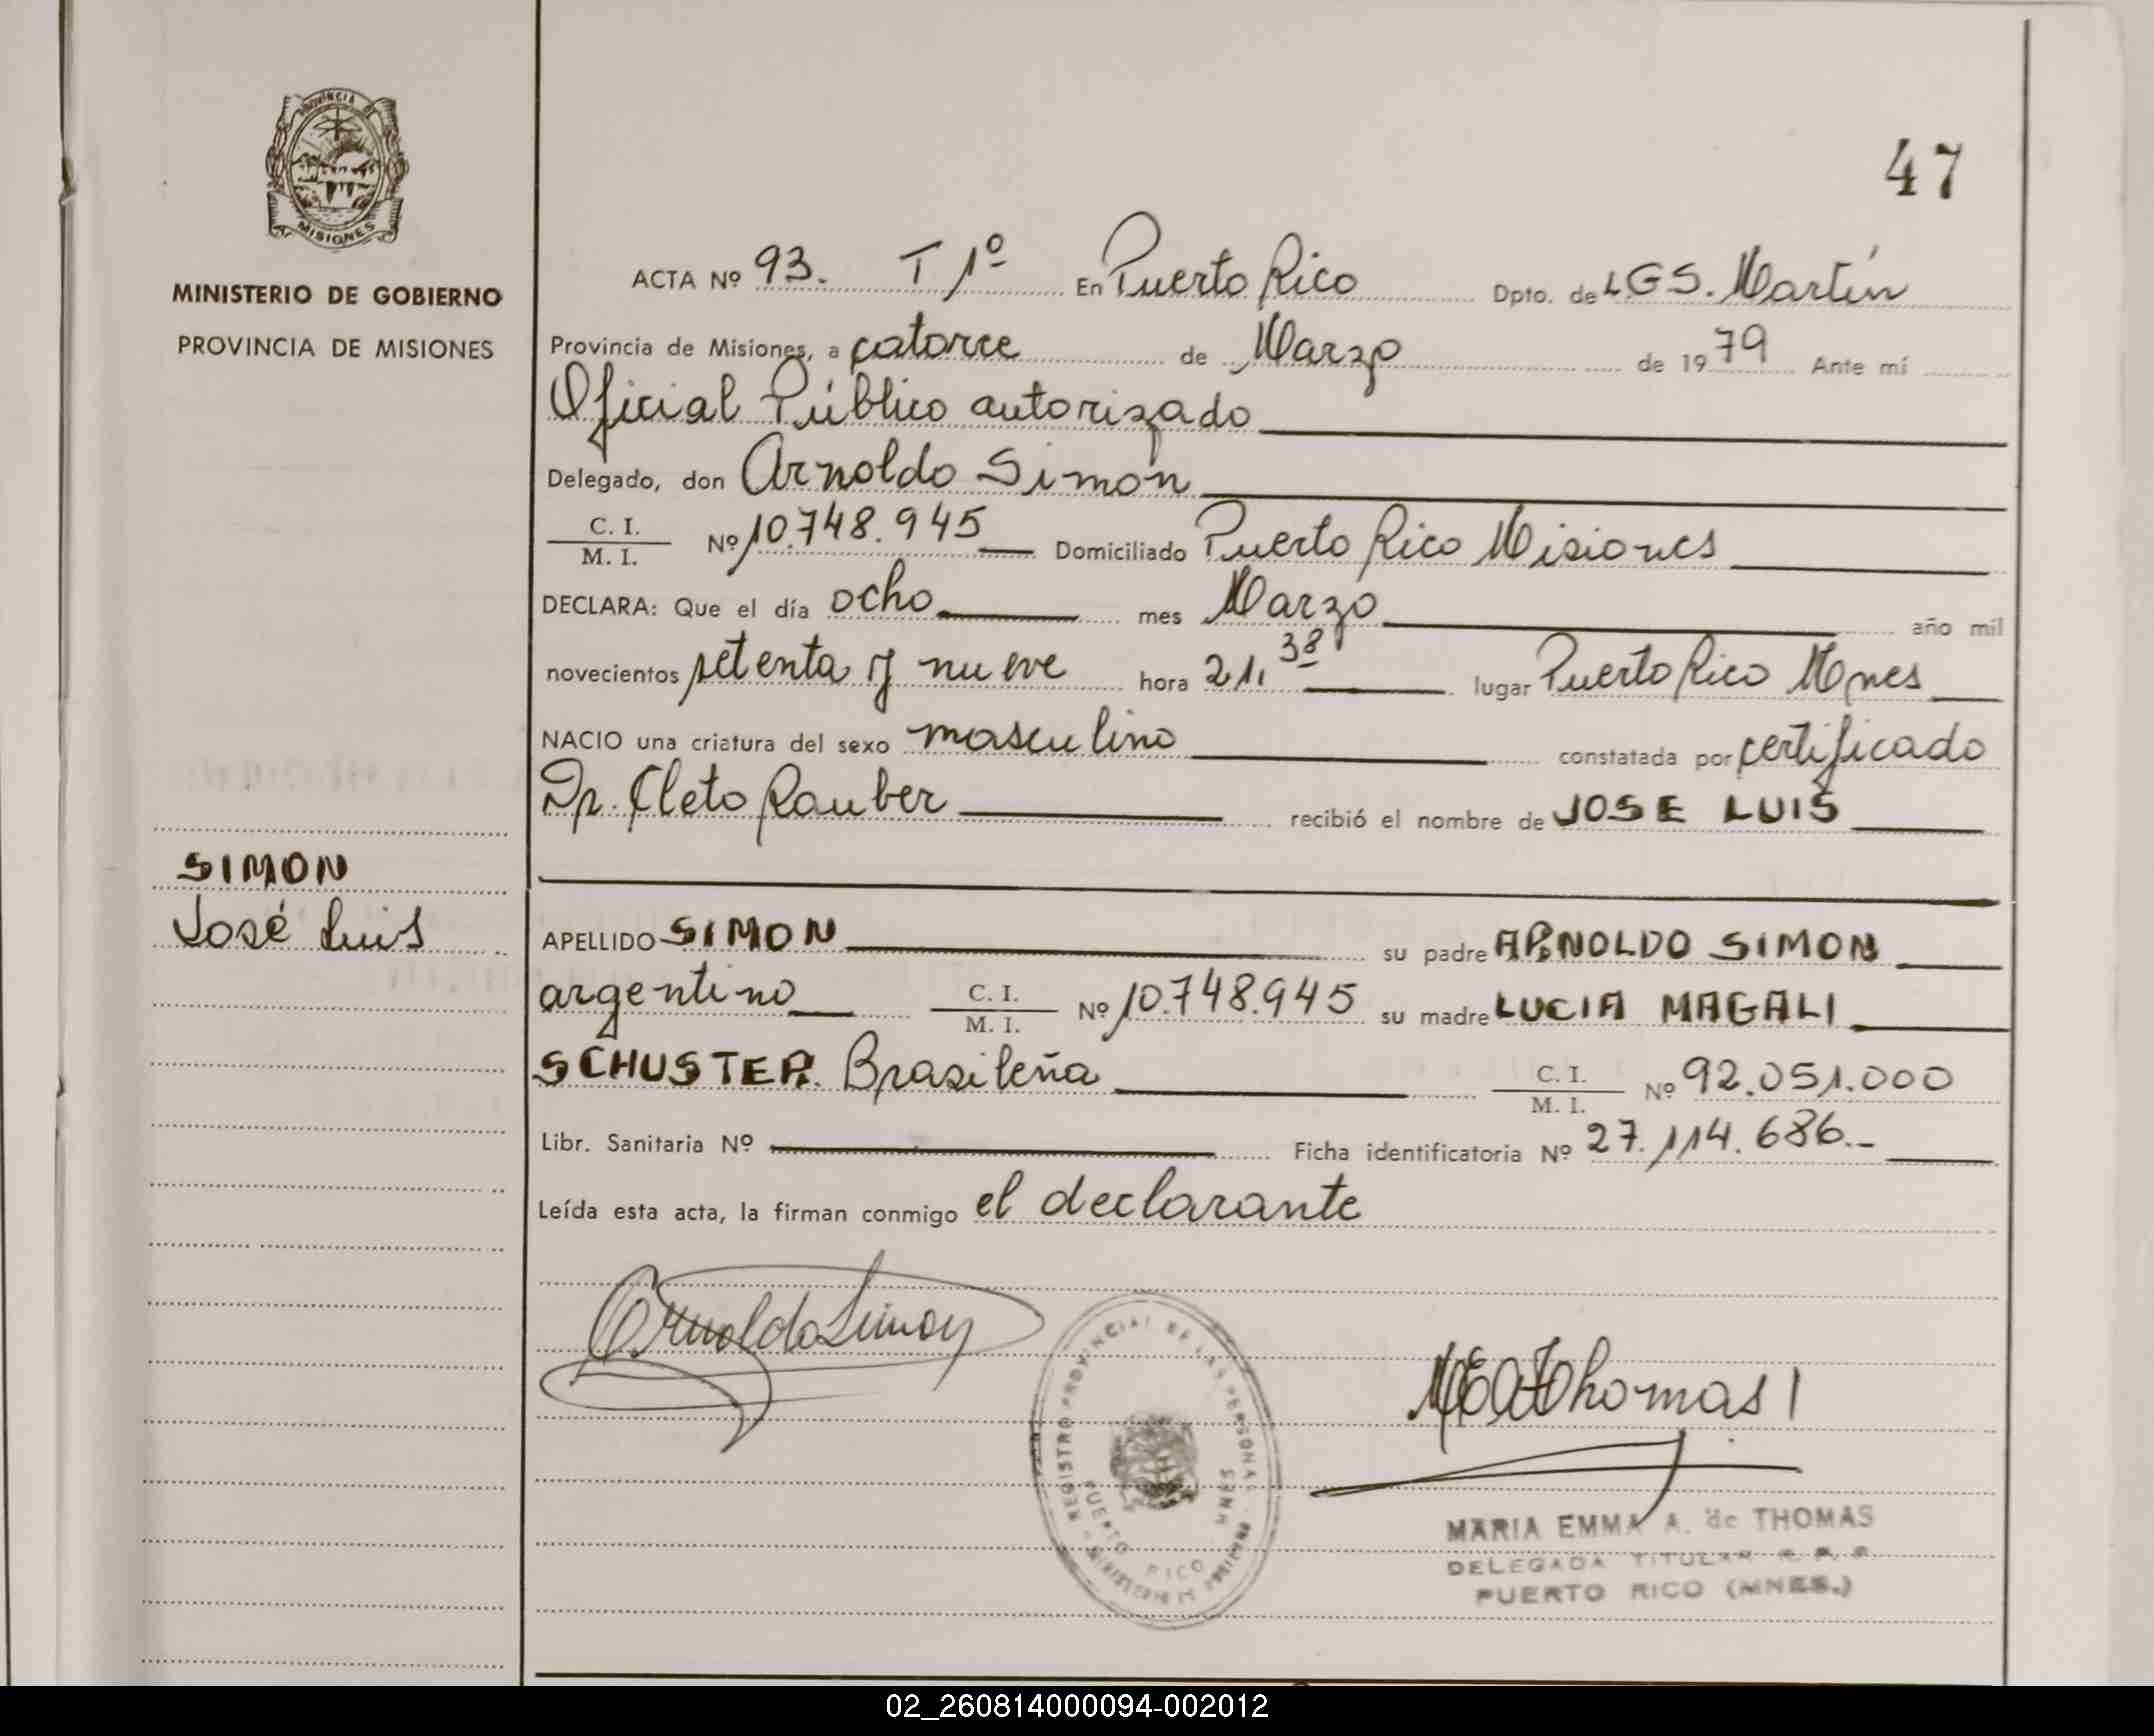 PROVINCIA DE
MISIONES
MINISTERIO DE GOBIERNO
PROVINCIA DE MISIONES
47
ACTA Nº 93. T 1º En Puerto Rico Dpto. de L.G.S. Martín
Provincia de Misiones, a catorce de Marzo de 1979 Ante mí
Oficial Público autorizado
Delegado, don Arnoldo Simón
C. I.
M. I. Nº 10.748.945 Domiciliado Puerto Rico Misiones
DECLARA: Que el día ocho mes Marzo año mil
novecientos setenta y nueve hora 21,38 lugar Puerto Rico Mnes
NACIO una criatura del sexo masculino constatada por certificado
Dr. Cleto Rauber recibió el nombre de JOSE LUIS
SIMON
José Luis
APELLIDO SIMON su padre ARNOLDO SIMON
argentino C. I.
M. I. Nº 10.748.945 su madre LUCIA MAGALI
SCHUSTER. Brasileña C. I.
M. I. Nº 92.051.000
Libr. Sanitaria Nº Ficha identificatoria Nº 27.114.686.-
Leída esta acta, la firman conmigo el declarante
Arnoldo Simon
REGISTRO PROVINCIAL DE LAS PERSONAS
PUERTO RICO MNES
MEAdThomas
MARIA EMMA A. de THOMAS
DELEGADA TITULAR R. P. P.
PUERTO RICO (MNES.)
02_260814000094-002012